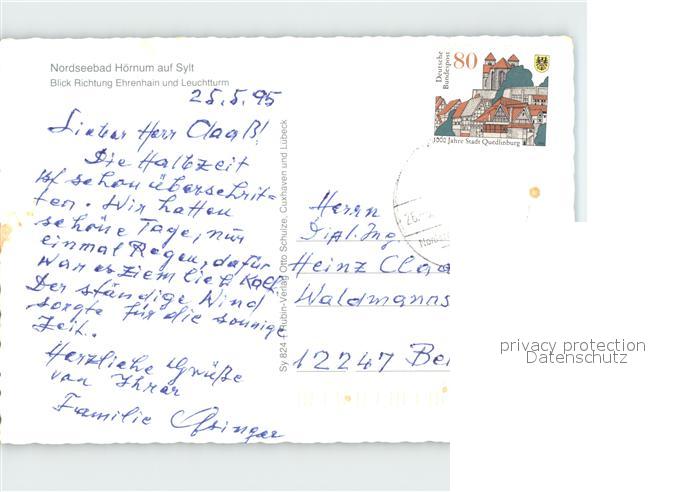 Nordseebad Hörnum auf Sylt
Blick Richtung Ehrenhain und Leuchtturm
25.5.95
Lieber Herr Claaß!
Die Halbzeit
ist schon überschrit=
ten. Wir hatten
schöne Tage, nur
einmal Regen, dafür
war es ziemlich kalt.
Der ständige Wind
sorgte für die sonnige
Zeit.
Herzliche Grüße
von Ihrer
Familie
Sy 824 Rubin-Verlag Otto Schulze, Cuxhaven und Lübeck
Deutsche
Bundespost
80
1000 Jahre Stadt Quedlinburg
Herrn
Dipl. Ing.
Heinz Claa
Waldmanns
12247 Be
privacy protection
Datenschutz